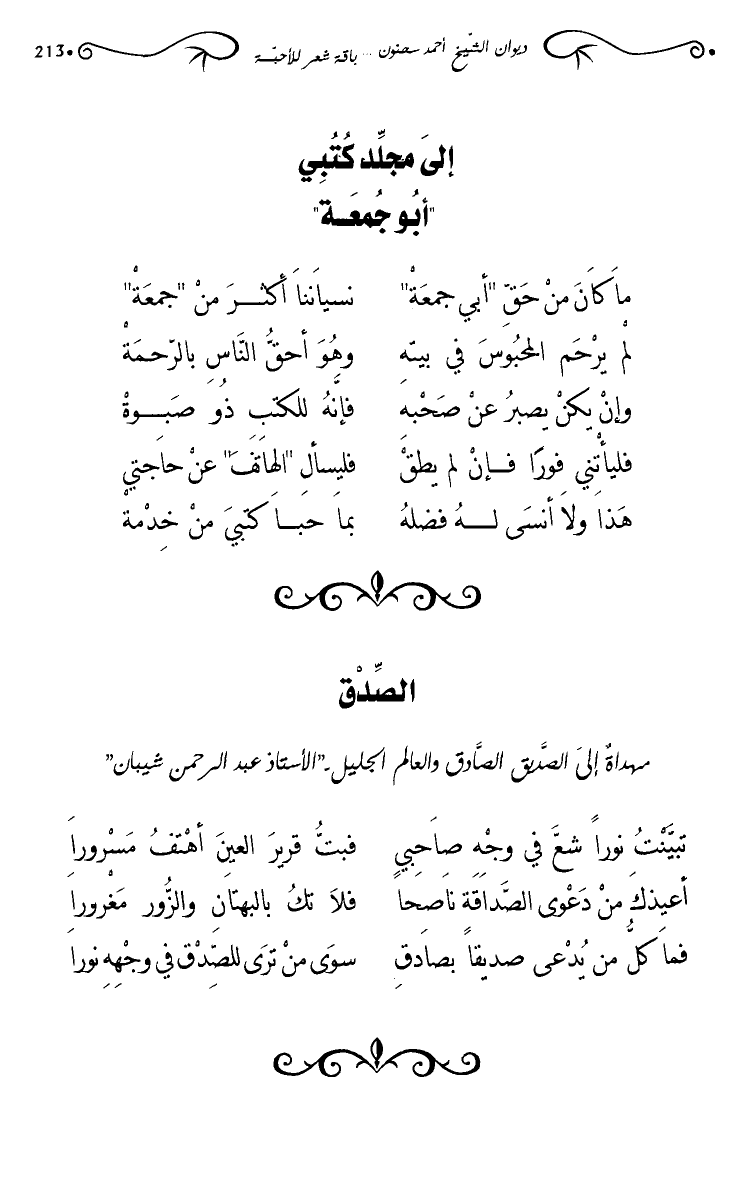 ديوان الشّيخ أحمد سحنون ... باقة شعر للأحبّة 213
إلىَ مجلِّد كُتُبِي
"أبُو جُمعَة"
ماَ كاَنَ منْ حَقّ "أبي جمعَةْ" نسياَننا أكثرَ منْ "جمعَةْ"
لمْ يرْحَم المحبُوسَ في بيتهِ وهُوَ أحقُّ النَّاسِ بالرّحمَةْ
وإنْ يكنْ يصبرُ عنْ صَحْبهِ فإنَّهُ للكتبِ ذُو صَبوةْ
فليأتْني فورًا فإنْ لم يطقْ فليسألِ "الهاَتفَ" عنْ حاجَتي
هَذاَ ولاَ أنسَى لهُ فضلهُ بماَ حباَ كتبيَ منْ خِدْمةْ
الصِّدْق
مهداةٌ إلىَ الصَّديق الصَّادق والعالم الجليل ـ"الأستاذ عبد الرحمن شيبان"
تبيَّنْتُ نوراً شعَّ في وجْهِ صاَحِبيِ فبتُّ قريرَ العينِ أهْتفُ مَسْروراَ
أعيذكَ منْ دَعْوى الصَّداقَة ناَصحاَ فلاَ تكُ بالبهتاَنِ والزُّور مَغْروراَ
فماَ كلُّ من يُدْعى صديقاً بصادقِ سوَى منْ ترَى للصِّدْق في وجْههِ نوراَ